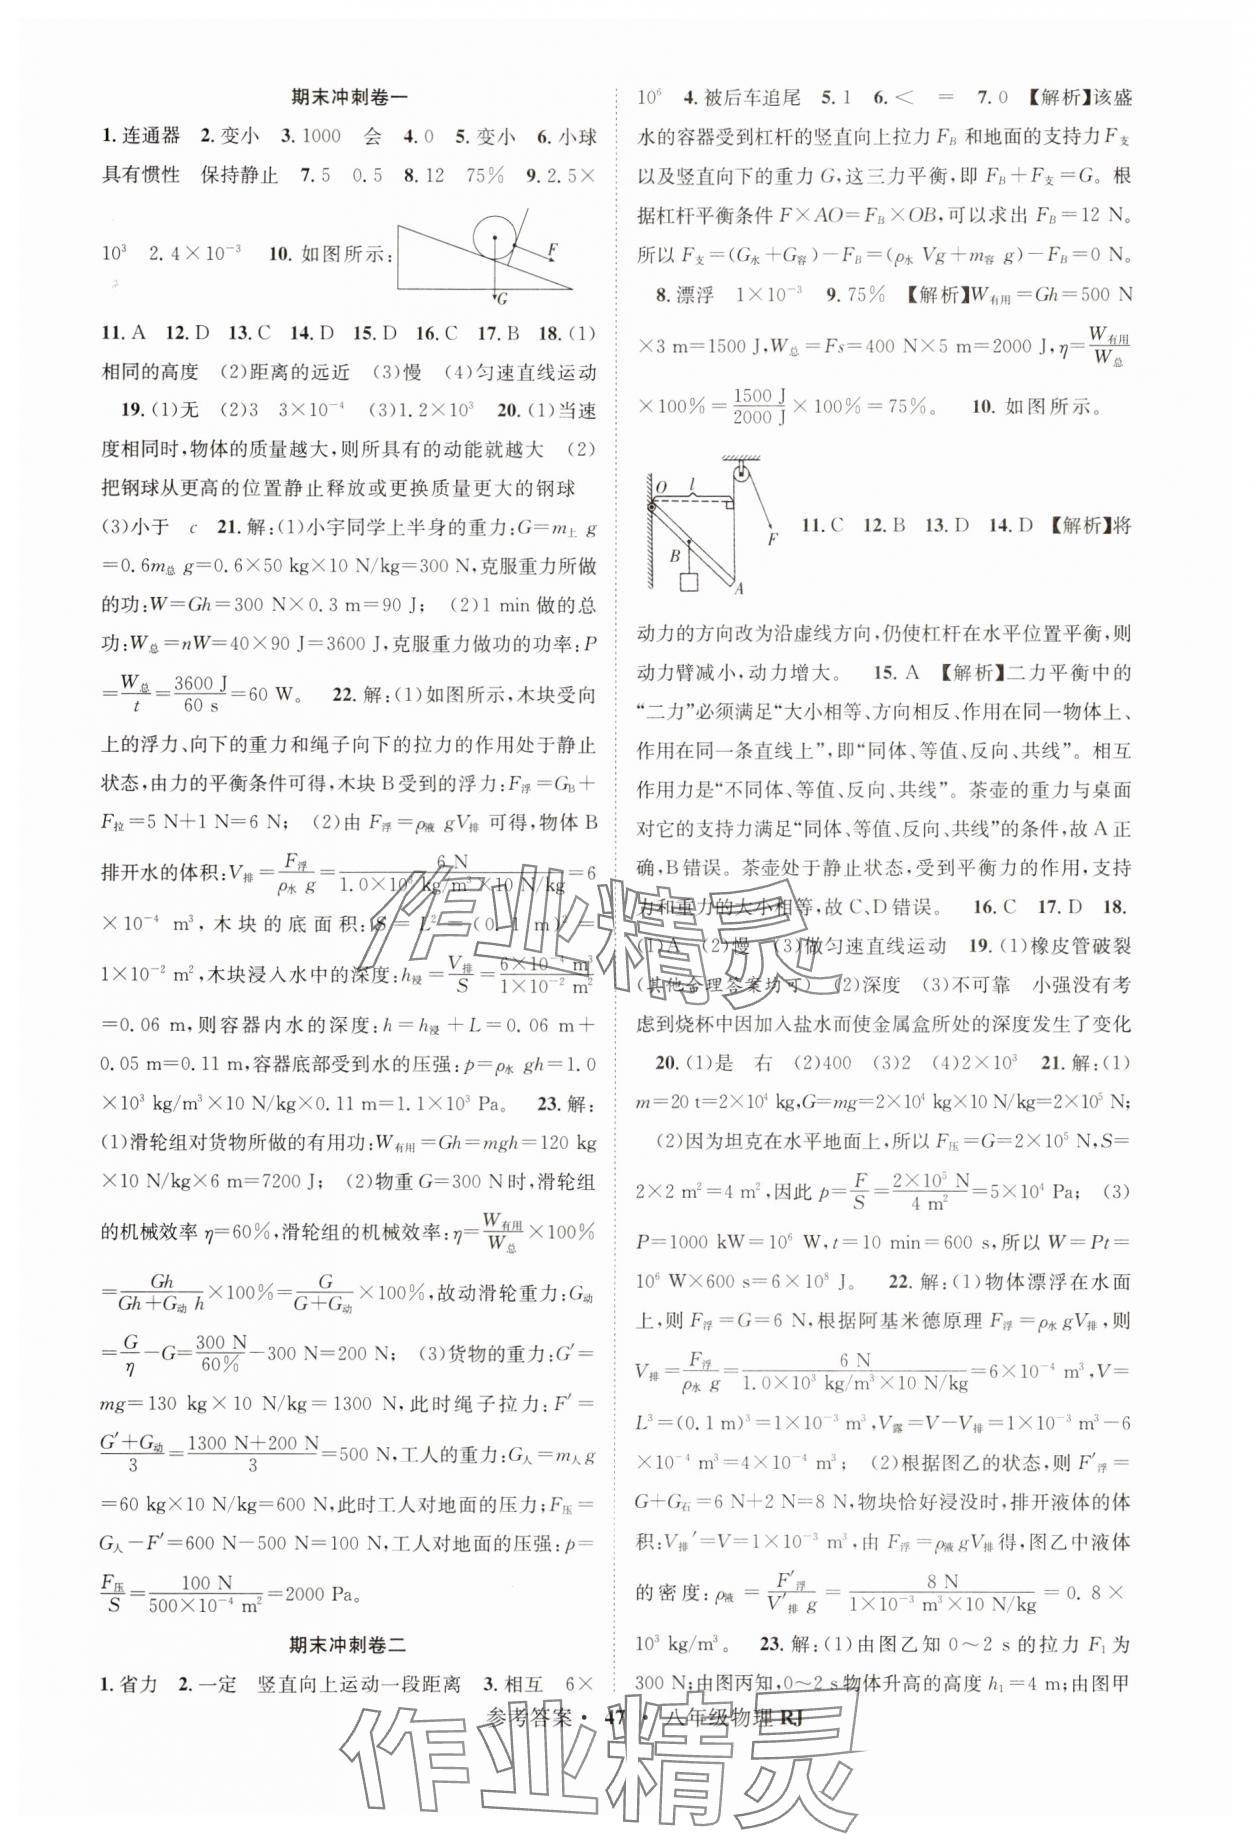 期末冲刺卷一
1.连通器 2.变小 3.1000 会 4.0 5.变小 6.小球
具有惯性 保持静止 7.5 0.5 8.12 75% 9.2.5×
10³ 2.4×10⁻³ 10.如图所示:
F
G
11.A 12.D 13.C 14.D 15.D 16.C 17.B 18.(1)
相同的高度 (2)距离的远近 (3)慢 (4)匀速直线运动
19.(1)无 (2)3 3×10⁻⁴ (3)1.2×10³ 20.(1)当速
度相同时,物体的质量越大,则所具有的动能就越大 (2)
把钢球从更高的位置静止释放或更换质量更大的钢球
(3)小于 c 21.解:(1)小宇同学上半身的重力:G=m上 g
=0.6m总 g=0.6×50 kg×10 N/kg=300 N,克服重力所做
的功:W=Gh=300 N×0.3 m=90 J; (2)1 min做的总
功:W总=nW=40×90 J=3600 J,克服重力做功的功率:P
=W总/t=3600 J/60 s=60 W。 22.解:(1)如图所示,木块受向
上的浮力、向下的重力和绳子向下的拉力的作用处于静止
状态,由力的平衡条件可得,木块B受到的浮力:F浮=GB+
F拉=5 N+1 N=6 N; (2)由 F浮=ρ液 gV排 可得,物体B
排开水的体积:V排=F浮/ρ水 g=6 N/1.0×10³ kg/m³×10 N/kg=6
×10⁻⁴ m³,木块的底面积:S=L²=(0.1 m)²=
1×10⁻² m²,木块浸入水中的深度:h浸=V排/S=6×10⁻⁴ m³/1×10⁻² m²
=0.06 m,则容器内水的深度:h=h浸+L=0.06 m+
0.05 m=0.11 m,容器底部受到水的压强:p=ρ水 gh=1.0
×10³ kg/m³×10 N/kg×0.11 m=1.1×10³ Pa。 23.解:
(1)滑轮组对货物所做的有用功:W有用=Gh=mgh=120 kg
×10 N/kg×6 m=7200 J; (2)物重G=300 N时,滑轮组
的机械效率 η=60%,滑轮组的机械效率:η=W有用/W总×100%
=Gh/Gh+G动 h×100%=G/G+G动×100%,故动滑轮重力:G动
=G/η-G=300 N/60%-300 N=200 N; (3)货物的重力:G′=
mg=130 kg×10 N/kg=1300 N,此时绳子拉力:F′=
G′+G动/3=1300 N+200 N/3=500 N,工人的重力:G人=m人g
=60 kg×10 N/kg=600 N,此时工人对地面的压力:F压=
G人-F′=600 N-500 N=100 N,工人对地面的压强:p=
F压/S=100 N/500×10⁻⁴ m²=2000 Pa。
期末冲刺卷二
1.省力 2.一定 竖直向上运动一段距离 3.相互 6×
10⁶ 4.被后车追尾 5.1 6.< = 7.0 【解析】该盛
水的容器受到杠杆的竖直向上拉力 FB 和地面的支持力F支
以及竖直向下的重力 G,这三力平衡,即 FB+F支=G。根
据杠杆平衡条件 F×AO=FB×OB,可以求出 FB=12 N。
所以 F支=(G水+G容)-FB=(ρ水 Vg+m容 g)-FB=0 N。
8.漂浮 1×10⁻³ 9.75% 【解析】W有用=Gh=500 N
×3 m=1500 J,W总=Fs=400 N×5 m=2000 J,η=W有用/W总
×100%=1500 J/2000 J×100%=75%。 10.如图所示。
O
l
B
A
F
11.C 12.B 13.D 14.D 【解析】将
动力的方向改为沿虚线方向,仍使杠杆在水平位置平衡,则
动力臂减小,动力增大。 15.A 【解析】二力平衡中的
“二力”必须满足“大小相等、方向相反、作用在同一物体上、
作用在同一条直线上”,即“同体、等值、反向、共线”。相互
作用力是“不同体、等值、反向、共线”。茶壶的重力与桌面
对它的支持力满足“同体、等值、反向、共线”的条件,故A正
确,B错误。茶壶处于静止状态,受到平衡力的作用,支持
力和重力的大小相等,故C、D错误。 16.C 17.D 18.
(1)A (2)慢 (3)做匀速直线运动 19.(1)橡皮管破裂
(其他合理答案均可) (2)深度 (3)不可靠 小强没有考
虑到烧杯中因加入盐水而使金属盒所处的深度发生了变化
20.(1)是 右 (2)400 (3)2 (4)2×10³ 21.解:(1)
m=20 t=2×10⁴ kg,G=mg=2×10⁴ kg×10 N/kg=2×10⁵ N;
(2)因为坦克在水平地面上,所以F压=G=2×10⁵ N,S=
2×2 m²=4 m²,因此 p=F/S=2×10⁵ N/4 m²=5×10⁴ Pa; (3)
P=1000 kW=10⁶ W,t=10 min=600 s,所以 W=Pt=
10⁶ W×600 s=6×10⁸ J。 22.解:(1)物体漂浮在水面
上,则 F浮=G=6 N,根据阿基米德原理 F浮=ρ水 gV排,则
V排=F浮/ρ水 g=6 N/1.0×10³ kg/m³×10 N/kg=6×10⁻⁴ m³,V=
L³=(0.1 m)³=1×10⁻³ m³,V露=V-V排=1×10⁻³ m³-6
×10⁻⁴ m³=4×10⁻⁴ m³; (2)根据图乙的状态,则 F′浮=
G+G石=6 N+2 N=8 N,物块恰好浸没时,排开液体的体
积:V排′=V=1×10⁻³ m³,由 F浮=ρ液 gV排得,图乙中液体
的密度:ρ液=F′浮/V′排 g=8 N/1×10⁻³ m³×10 N/kg=0.8×
10³ kg/m³。 23.解:(1)由图乙知 0～2 s的拉力 F₁为
300 N;由图丙知,0～2 s物体升高的高度 h₁=4 m;由图甲
参考答案·47·八年级物理 RJ
作业精灵
作业精灵